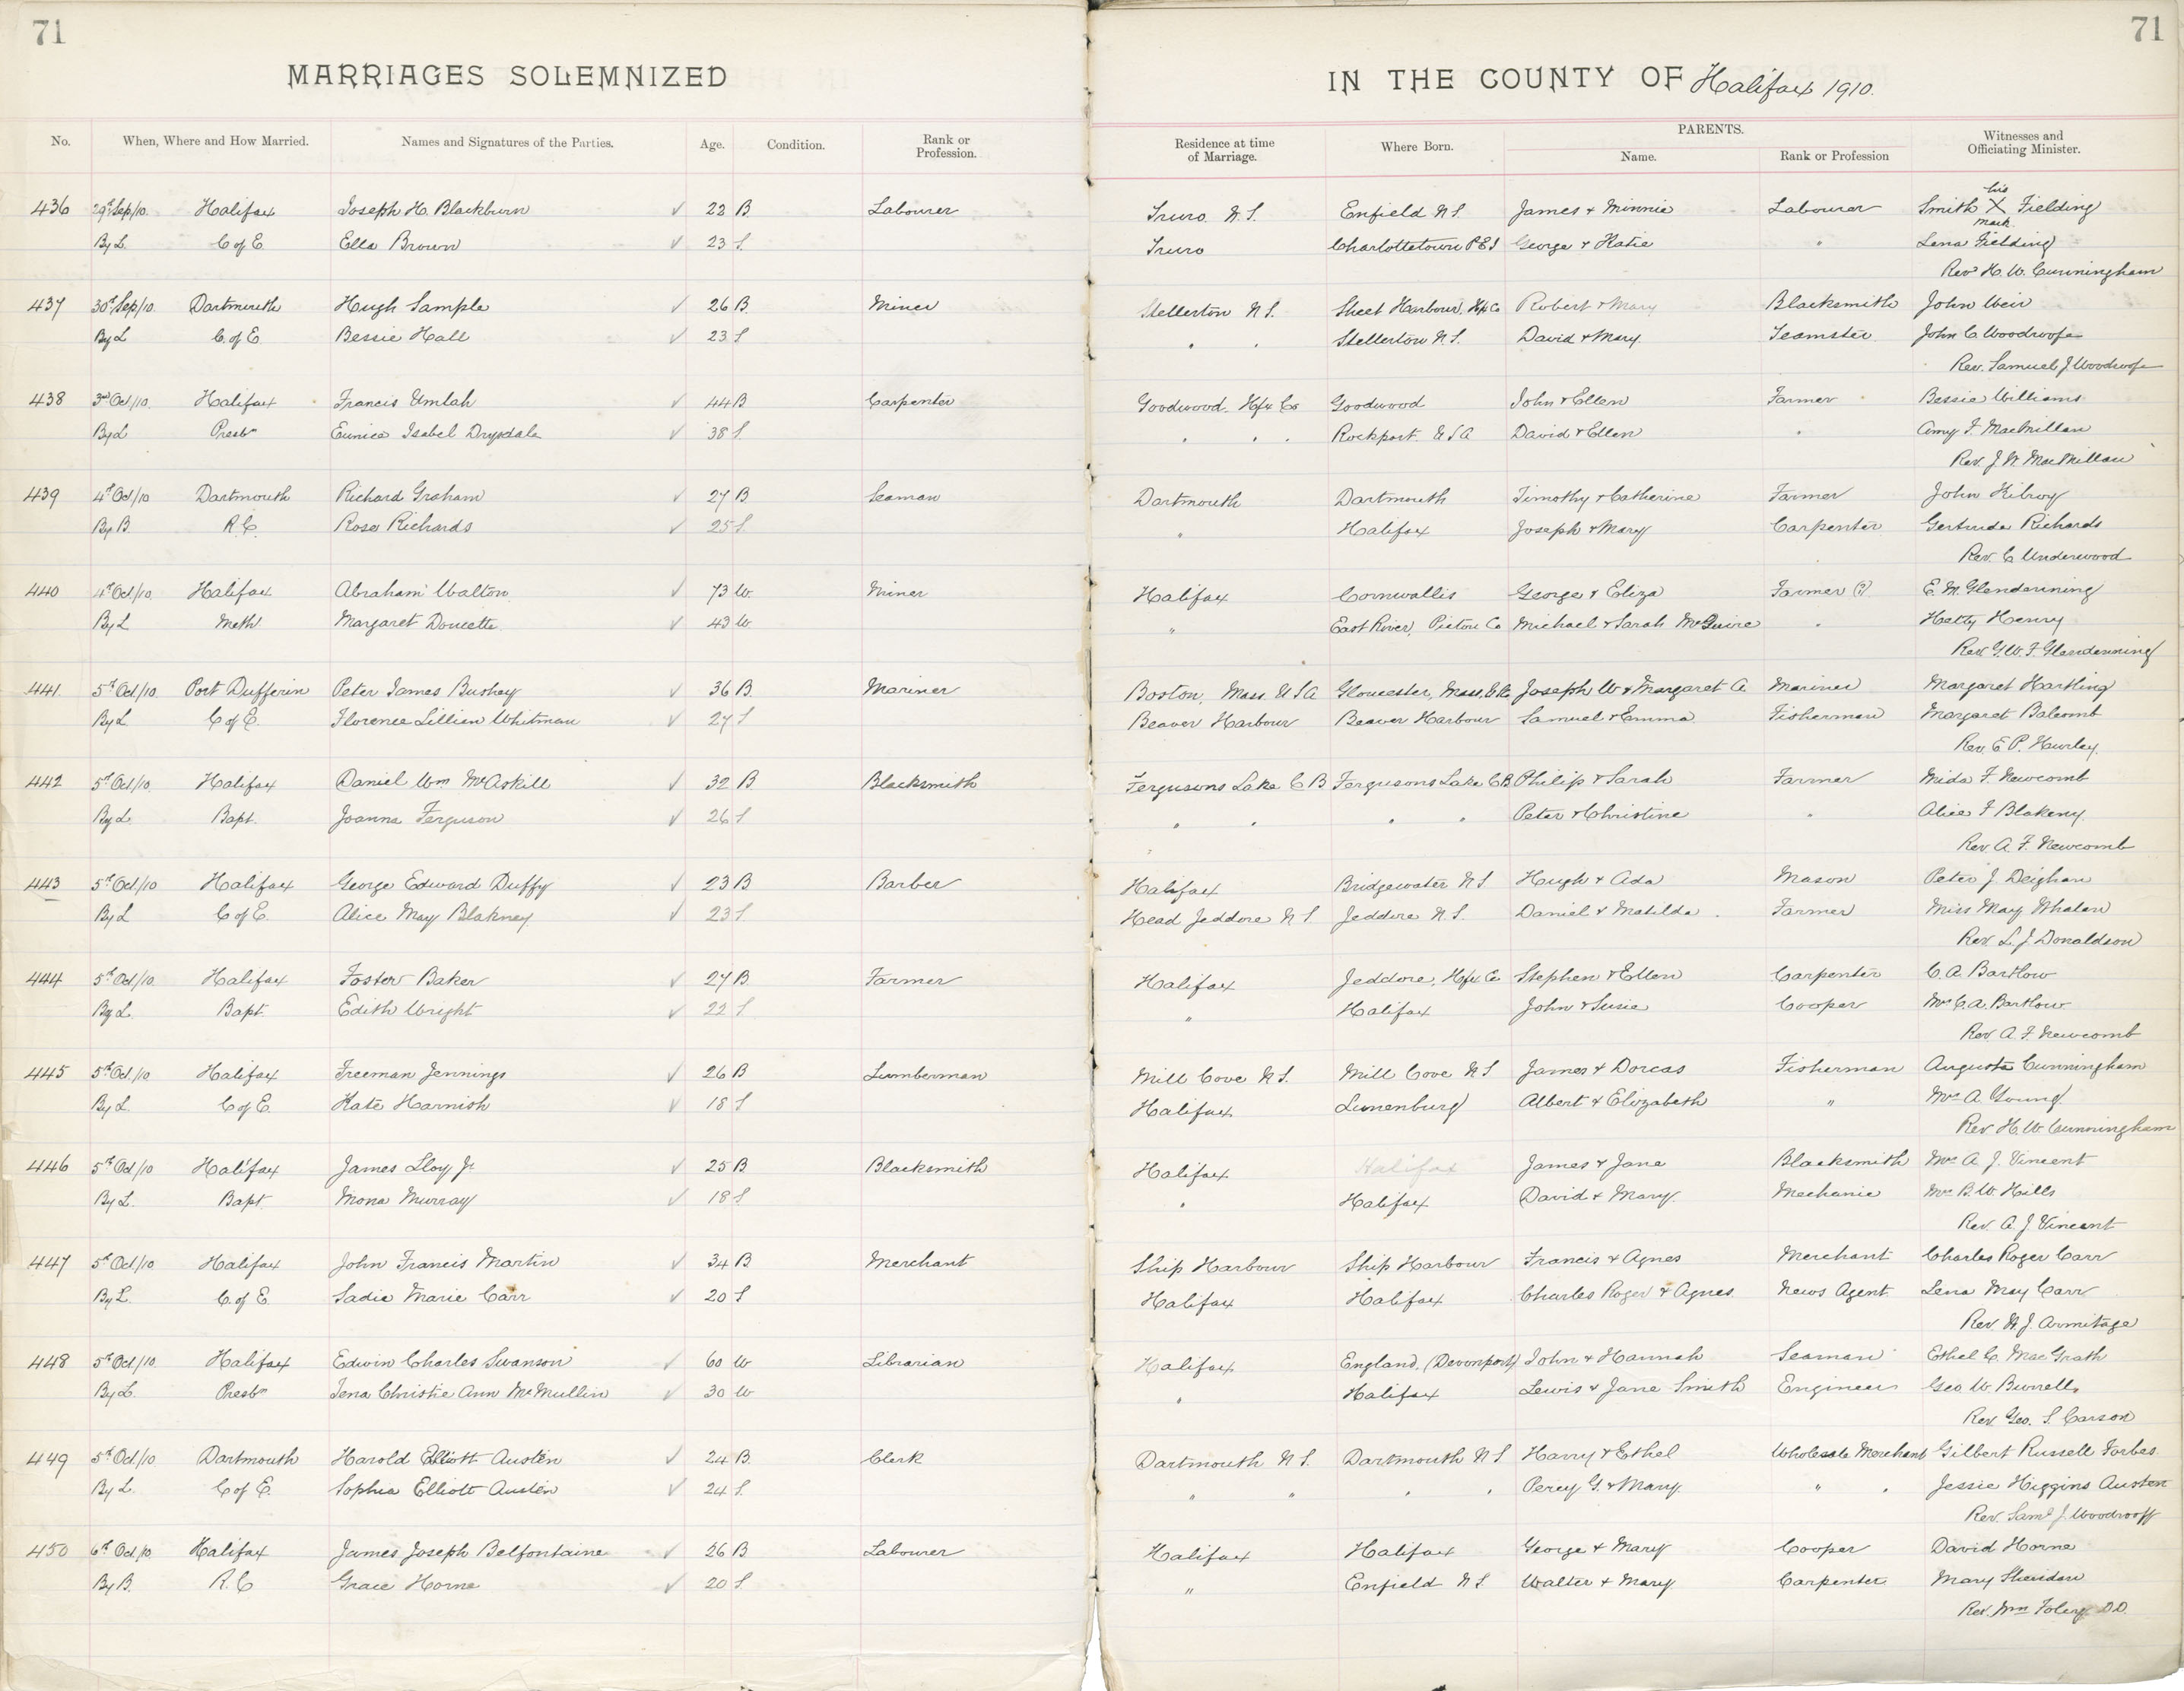 71
71
MARRIAGES SOLEMNIZED IN THE COUNTY OF Halifax 1910.
No. When, Where and How Married. Names and Signatures of the Parties. Age. Condition. Rank or Profession. Residence at time of Marriage. Where Born. PARENTS. Name. Rank or Profession Witnesses and Officiating Minister.
his
436 29th Sep/10. Halifax Joseph H. Blackburn ✓ 22 B Labourer Truro. N.S. Enfield N.S. James & Minnie Labourer Smith X Fielding
mark
By L. C of E Ella Brown ✓ 23 S. Truro Charlottetown P.E.I George & Katie " Lena Fielding
Revd H. W. Cunningham
437 30th Sep/10. Dartmouth Hugh Sample ✓ 26 B. Miner Stellerton N.S. Sheet Harbour, Hfx Co Robert & Mary Blacksmith John Weir
By L C. of E. Bessie Hall ✓ 23 S " " Stellerton N.S. David & Mary Teamster John C. Woodroofe
Rev. Samuel J Woodroofe
438 3rd Oct/10. Halifax Francis Umlah ✓ 44 B Carpenter Goodwood. Hfx Co Goodwood John & Ellen Farmer Bessie Williams
By L Presbn Eunice Isabel Drysdale ✓ 38 S. " " " Rockport. U S A David & Ellen " Amy F. MacMillan
Rev. J. W. MacMillan
439 4th Oct/10 Dartmouth Richard Graham ✓ 27 B Seaman Dartmouth Dartmouth Timothy & Catherine Farmer John Kilroy
By B. R.C. Rose Richards ✓ 25 S. " Halifax Joseph & Mary Carpenter Gertrude Richards
Rev. C. Underwood
440 4th Oct/10. Halifax Abraham Walton ✓ 73 W. Miner Halifax Cornwallis George & Eliza Farmer (?) E. M. Glendenning
By L Meth. Margaret Doucette ✓ 43 W. " East River, Pictou Co Michael & Sarah McGuire " Hetty Henry
Rev. G. W. F. Glendenning
441. 5th Oct/10. Port Dufferin Peter James Bushey ✓ 36 B. Mariner Boston, Mass. U S A Gloucester, Mass, Joseph W & Margaret A. Mariner Margaret Hartling
By L. C of E. Florence Lillian Whitman ✓ 27 S Beaver Harbour Beaver Harbour Samuel & Emma Fisherman Margaret Balcomb
Rev. E. P. Hurley.
442 5th Oct/10. Halifax Daniel Wm McAskill ✓ 32 B. Blacksmith Fergusons Lake C B Fergusons Lake C B Philip & Sarah Farmer Mida F Newcomb
By L. Bapt. Joanna Ferguson ✓ 26 S " " " " Peter & Christine " Alice F Blakeny.
Rev A. F. Newcomb
443 5th Oct/10 Halifax George Edward Duffy ✓ 23 B Barber Halifax Bridgewater N S Hugh & Ada Mason Peter J. Deighan
By L C of E. Alice May Blakney ✓ 23 S. Head Jeddore N S. Jeddore N.S. Daniel & Matilda. Farmer Miss May Whalen
Rev L. J Donaldson
444 5th Oct/10. Halifax Foster Baker ✓ 27 B. Farmer Halifax Jeddore, Hfx Co Stephen & Ellen Carpenter C. A. Bartlow
By L. Bapt. Edith Wright ✓ 22 S " Halifax John & Susie Cooper Mrs C. A. Bartlow.
Rev A. F Newcomb
445 5th Oct/10 Halifax Freeman Jennings ✓ 26 B Lumberman Mill Cove N.S. Mill Cove N S James & Dorcas Fisherman Augusta Cunningham
By L. C of E. Kate Harnish ✓ 18 S Halifax Lunenburg Albert & Elizabeth " Mrs A. Young
Rev H. W. Cunningham
446 5th Oct/10 Halifax James Lloy Jr ✓ 25 B Blacksmith Halifax Halifax James & Jane Blacksmith Mrs A. J. Vincent
By L. Bapt. Mona Murray ✓ 18 S. " Halifax David & Mary. Mechanic Mrs B. W. Hills
Rev. A. J. Vincent
447 5th Oct/10 Halifax John Francis Martin ✓ 34 B Merchant Ship Harbour Ship Harbour Francis & Agnes Merchant Charles Roger Carr
By L. C. of E Sadie Marie Carr ✓ 20 S Halifax Halifax Charles Roger & Agnes. News Agent Lena May Carr
Rev. W. J. Armitage
448 5th Oct/10. Halifax Edwin Charles Swanson ✓ 60 W Librarian Halifax England, (Devonport) John & Hannah Seaman Ethel C. MacGrath
By L. Presbn Tena Christie Ann McMullin ✓ 30 W " Halifax Lewis & Jane Smith Engineer Geo. W. Burrells
Rev Geo. S. Carson
449 5th Oct/10 Dartmouth Harold Elliott Austen ✓ 24 B. Clerk Dartmouth N S. Dartmouth N S Harry & Ethel Wholesale Merchant Gilbert Russell Forbes
By L. C of E. Sophia Elliott Austen ✓ 24 S. " " " " Percy G. & Mary " " Jessie Higgins Austen
Rev. Saml J. Woodrooff
450 6th Oct/10 Halifax James Joseph Belfontaine ✓ 26 B Labourer Halifax Halifax George & Mary Cooper David Horne
By B. R. C Grace Horne ✓ 20 S. " Enfield N S Walter & Mary Carpenter Mary Sheridan
Rev. Wm Foley D.D.